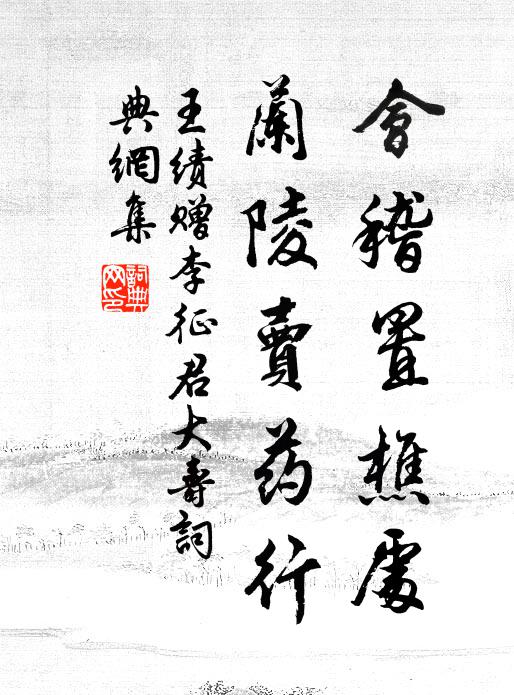 會稽置樵處
蘭陵賣药行
王績贈李征君大壽詞
典網集
詞典網印